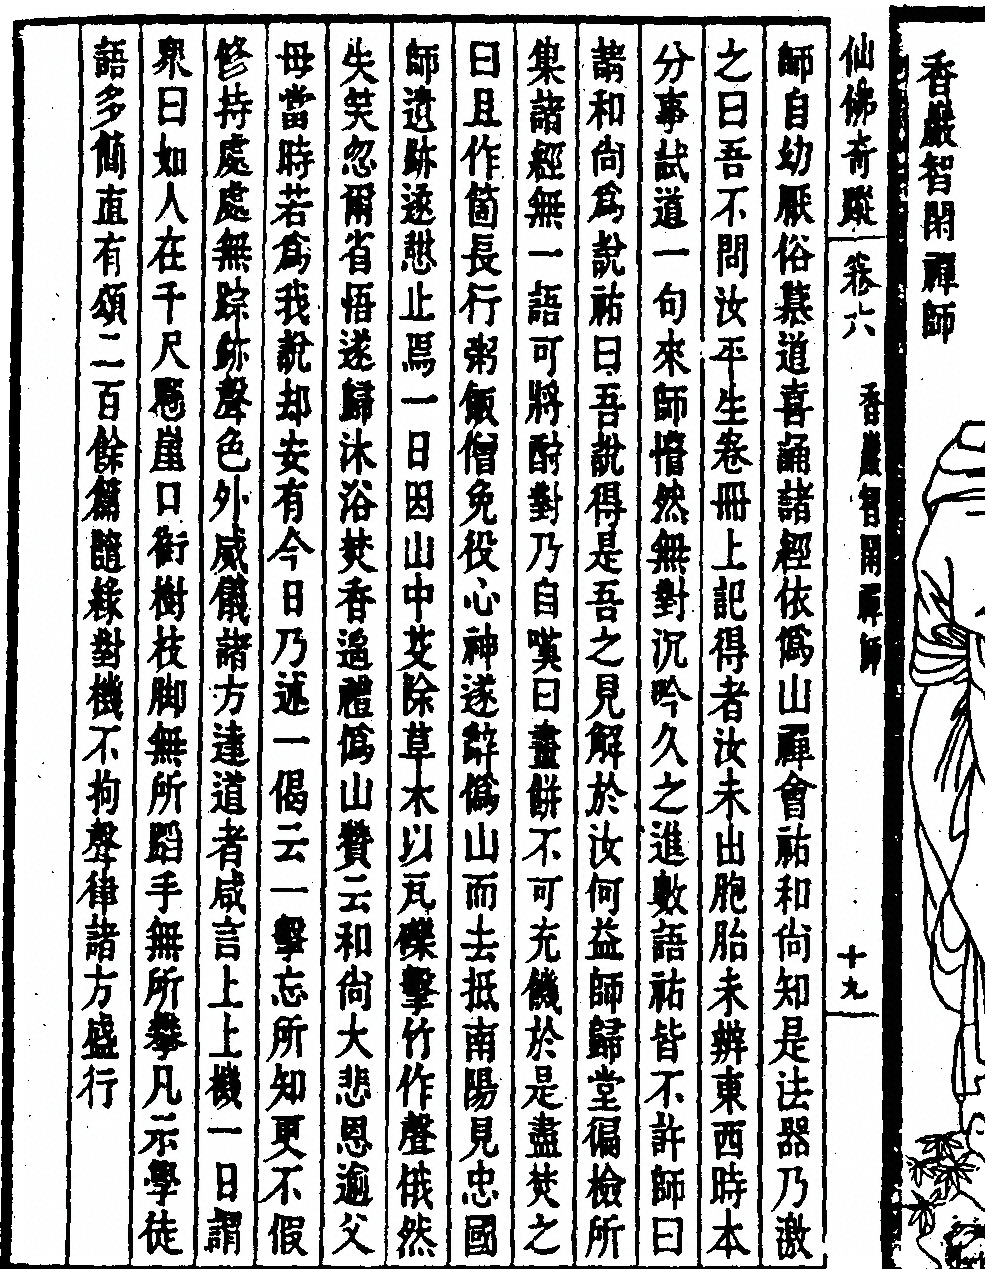 香嚴智閑禪師
仙佛奇蹤 卷六 香嚴智閑禪師 十九
師自幼厭俗慕道喜誦諸經依溈山禪會祐和尚知是法器乃激
之曰吾不問汝平生卷冊上記得者汝未出胞胎未辨東西時本
分事試道一句來師懵然無對沉吟久之進數語祐皆不許師曰
請和尚爲說祐曰吾說得是吾之見解於汝何益師歸堂徧檢所
集諸經無一語可將酧對乃自嘆曰畫餅不可充饑於是盡焚之
曰且作箇長行粥飯僧免役心神遂辭溈山而去抵南陽見忠國
師遺跡遂憇止焉一日因山中芟除草木以瓦礫擊竹作聲俄然
失笑忽爾省悟遂歸沐浴焚香遙禮溈山贊云和尚大悲恩逾父
母當時若爲我說却安有今日乃述一偈云一擊忘所知更不假
修持處處無踪跡聲色外威儀諸方達道者咸言上上機一日謂
衆曰如人在千尺懸崖口銜樹枝脚無所蹈手無所攀凡示學徒
語多簡直有頌二百餘篇隨緣對機不拘聲律諸方盛行